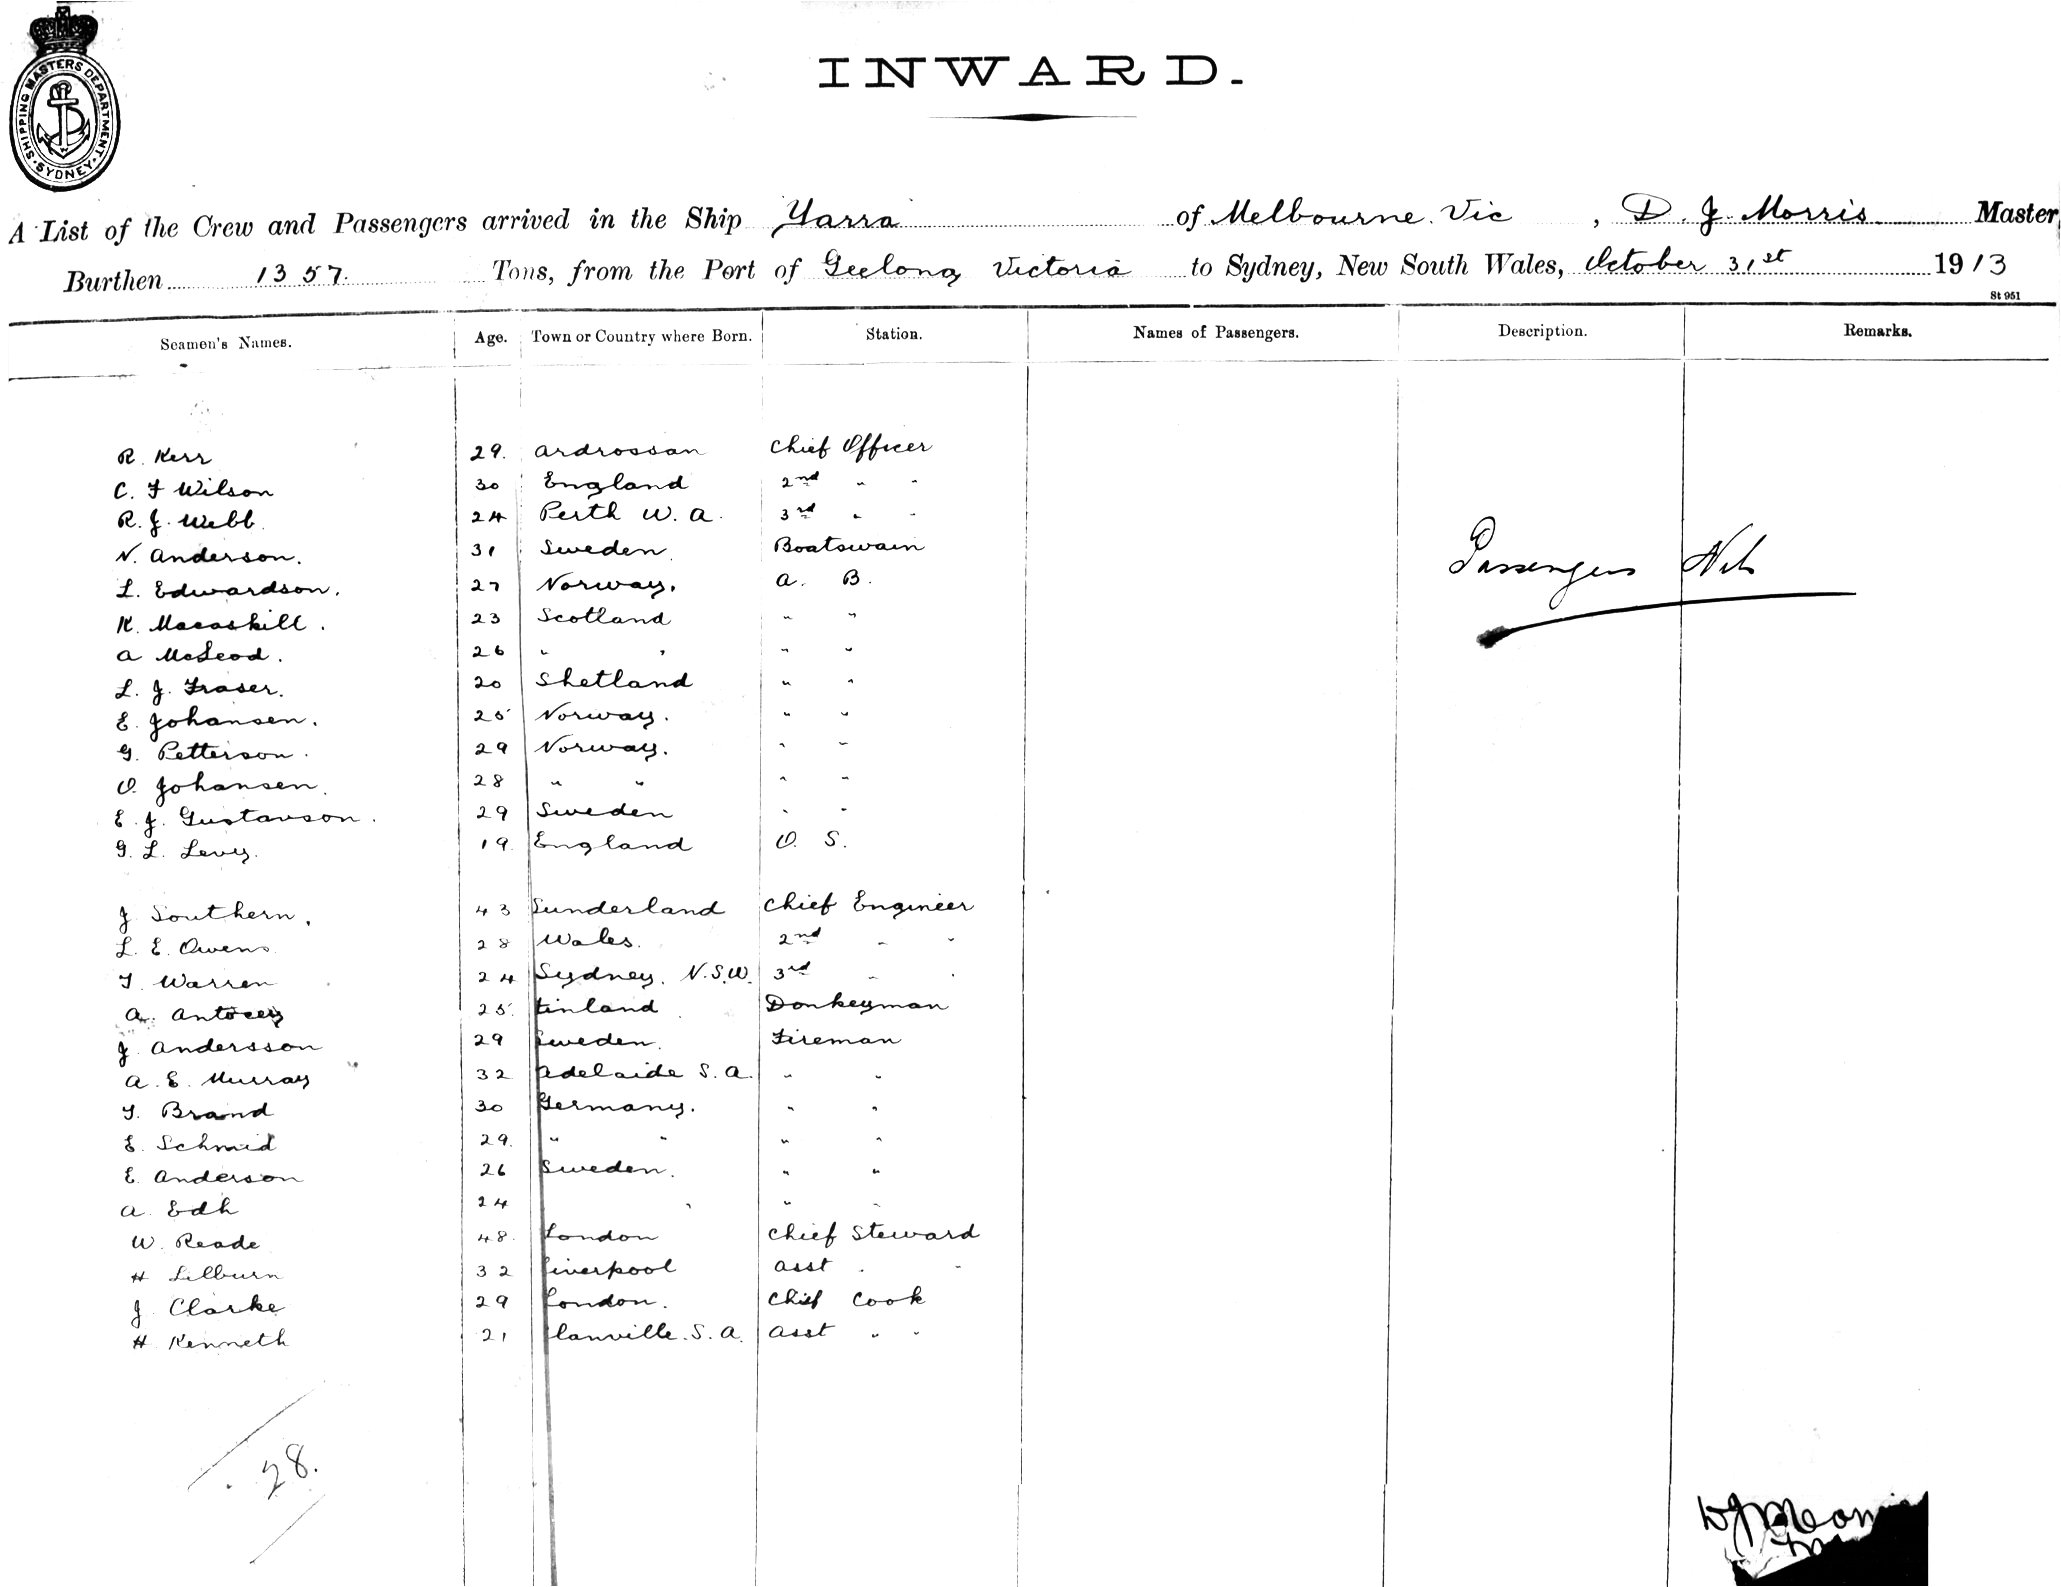 SHIPPING MASTERS DEPARTMENT. SYDNEY
INWARD.
A List of the Crew and Passengers arrived in the Ship Yarra of Melbourne. Vic, D. J. Morris Master
Burthen 1357. Tons, from the Port of Geelong Victoria to Sydney, New South Wales, October 31st 1913
St 951
Seamen's Names. Age. Town or Country where Born. Station. Names of Passengers. Description. Remarks.
R. Kerr 29. Ardrossan Chief Officer
C. F Wilson 30 England 2nd " "
R. J. Webb. 24 Perth W. A. 3rd " "
N. Anderson. 31 Sweden. Boatswain
Passengers Nil
L. Edwardson. 27 Norway. A. B.
K. Macaskill. 23 Scotland " "
A McLeod. 26 " " " "
L. J. Fraser. 20 Shetland " "
E. Johansen. 25 Norway. " "
G. Petterson. 29 Norway. " "
O. Johansen. 28 " " " "
E. J. Gustavson. 29 Sweden " "
G. L. Levy. 19. England O. S.
J Southern. 43 Sunderland Chief Engineer
L. E. Owens. 28 Wales. 2nd " "
T. Warren 24 Sydney. N.S.W. 3rd " "
A. 25. Finland Donkeyman
J. Andersson 29 Sweden. Fireman
A. E. Murray 32 Adelaide S. A. " "
T. Brand 30 Germany. " "
E. Schmid 29. " " " "
E. Anderson 26 Sweden. " "
A. Edh 24 " " "
W. Reade 48. London Chief Steward
H Lilburn 32 Liverpool Asst " "
J. Clarke 29 London. Chief Cook
H. Kenneth 21 Glanville. S. A. Asst " "
28.
D J Morris